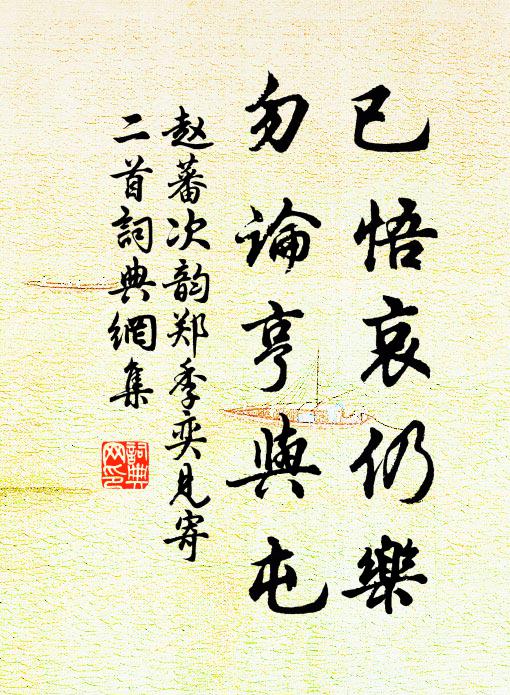 已悟哀仍樂
勿論亨與屯
赵蕃次韵郑季奕見寄
二首詞典網集
詞典
网印